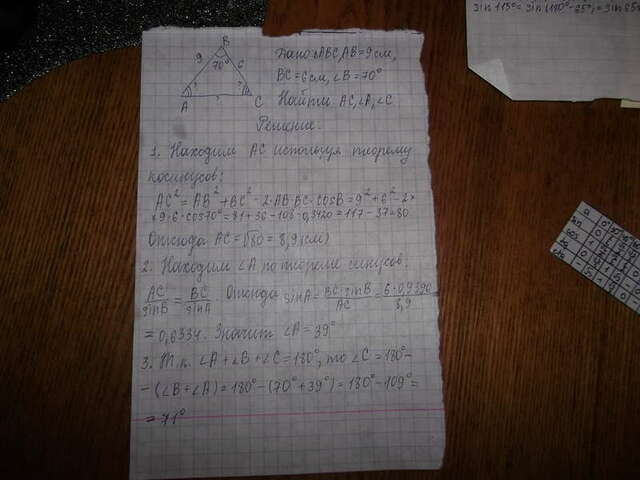 sin 115° = sin(180° - 65°) = sin 65°
B
9 70° 6
A C
Дано: △ABC, AB = 9 см,
BC = 6 см, ∠B = 70°
Найти AC, ∠A, ∠C
Решение.
1. Находим AC используя теорему
косинусов:
AC² = AB² + BC² - 2·AB·BC·cosB = 9² + 6² - 2×
×9·6·cos70° = 81 + 36 - 108·0,3420 = 117 - 37 = 80
Отсюда AC = √80 = 8,9(см)
2. Находим ∠A по теореме синусов:
AC/sinB = BC/sinA. Отсюда sinA = BC·sinB/AC = 6·0,9390/8,9
= 0,6334. Значит ∠A = 39°
3. Т.к. ∠A + ∠B + ∠C = 180°, то ∠C = 180° -
- (∠B + ∠A) = 180° - (70° + 39°) = 180° - 109° =
= 71°